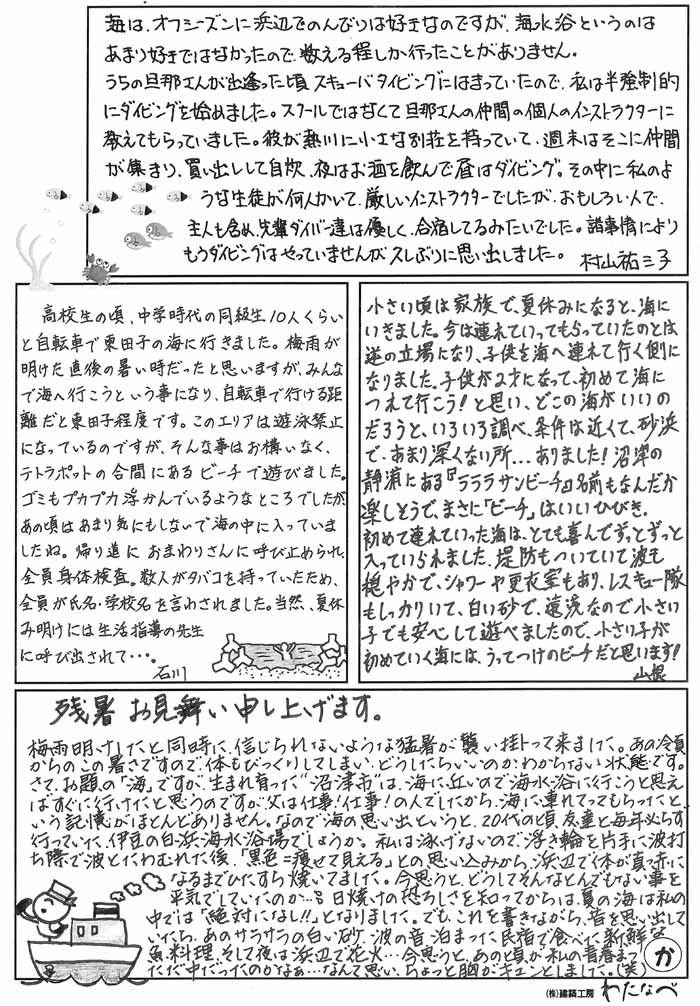 海は、オフシーズンに浜辺でのんびりは好きなのですが、海水浴というのは
あまり好きではなかったので、数える程しか行ったことがありません。
うちの旦那さんが出逢った頃スキューバダイビングにはまっていたので、私は半強制的
にダイビングを始めました。スクールではなくて旦那さんの仲間の個人のインストラクターに
教えてもらっていました。彼が熱川に小さな別荘を持っていて、週末はそこに仲間
が集まり、買い出しして自炊、夜はお酒を飲んで昼はダイビング。その中に私のよ
うな生徒が何人かいて、厳しいインストラクターでしたが、おもしろい人で、
主人も含め、先輩ダイバー達は優しく、合宿してるみたいでした。諸事情により
もうダイビングはやっていませんが久しぶりに思い出しました。
村山祐三子
高校生の頃、中学時代の同級生10人くらい
と自転車で東田子の海に行きました。梅雨が
明けた直後の暑い時だったと思いますが、みんな
で海へ行こうという事になり、自転車で行ける距
離だと東田子程度です。このエリアは遊泳禁止
になっているのですが、そんな事はお構いなく、
テトラポットの合間にあるビーチで遊びました。
ゴミもプカプカ浮かんでいるようなところでしたが、
あの頃はあまり気にもしないで海の中に入っていま
したね。帰り道におまわりさんに呼び止められ、
全員身体検査。数人がタバコを持っていたため、
全員が氏名・学校名を言わされました。当然、夏休
み明けには生活指導の先生
に呼び出されて・・・。
石川
小さい頃は家族で、夏休みになると、海に
いきました。今は連れていってもらっていたのとは
逆の立場になり、子供を海へ連れて行く側に
なりました。子供が2才になって、初めて海に
つれて行こう!と思い、どこの海がいいの
だろうと、いろいろ調べ、条件は近くて、砂浜
で、あまり深くない所...ありました!沼津の
静浦にある『ラララサンビーチ』名前もなんだか
楽しそうで、まさに「ビーチ」はいいひびき。
初めて連れていった海は、とても喜んでずっとずっと
入っていられました、堤防もついていて波も
穏やかで、シャワーや更衣室もあり、レスキュー隊
もしっかりいて、白い砂で、遠浅なので小さい
子でも安心して遊べましたので、小さい子が
初めていく海には、うってつけのビーチだと思います!
山根
残暑お見舞い申し上げます。
梅雨明けしたと同時に、信じられないような猛暑が襲い掛かって来ました。あの冷夏
からのこの暑さですので、体もびっくりしてしまい、どうしたらいいのかわからない状態です。
さて、お題の「海」ですが、生まれ育った"沼津市"は、海に近いので海水浴に行こうと思え
ばすぐに行けたと思うのですが、父は仕事!仕事!の人でしたから、海に連れてってもらったと
いう記憶がほとんどありません。なので海の思い出というと、20代の頃、友達と毎年必らず
行っていた、伊豆の白浜海水浴場でしょうか。私は泳げないので、浮き輪を片手に波打
ち際で波とたわむれた後、「黒色=痩せて見える」との思い込みから、浜辺で体が真っ赤に
なるまでひたすら焼いてました。今思うと、どうしてそんなとんでもない事を
平気でしていたのか…。日焼けの恐ろしさを知ってからは、夏の海は私の
中では「絶対になし!!」となりました。でも、これを書きながら、昔を思い出して
いたら、あのサラサラの白い砂、波の音、泊まった民宿で食べた新鮮な
魚料理、そして夜は浜辺で花火…今思うと、あの頃が私の青春まっ
ただ中だったのかなぁ…なんて思い、ちょっと胸がキュンとしました。(笑)
か
(株)建築工房 わたなべ